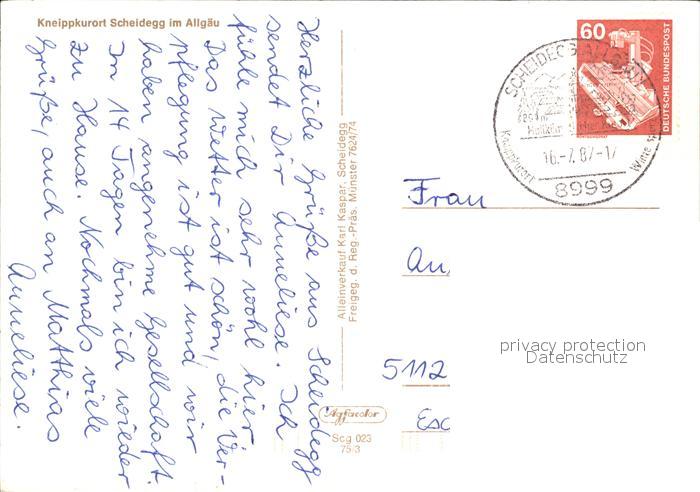 Kneippkurort Scheidegg im Allgäu
Herzliche Grüße aus Scheidegg
sendet Dir Anneliese. Ich
fühle mich sehr wohl hier.
Das Wetter ist schön, die Ver-
pflegung ist gut und wir
haben angenehme Gesellschaft.
In 14 Tagen bin ich wieder
zu Hause. Nochmals viele
Grüße, auch an Matthias
Anneliese.
Alleinverkauf Karl Kaspar, Scheidegg
Freigeg. d. Reg.-Präs. Münster 7624/74
Agfacolor
Scg 023
75/3
60
DEUTSCHE BUNDESPOST
SCHEIDEGG ALLGÄU
Kneippkurort
16.-7.87-17
8999
Frau
An
5112
Esc
privacy protection
Datenschutz